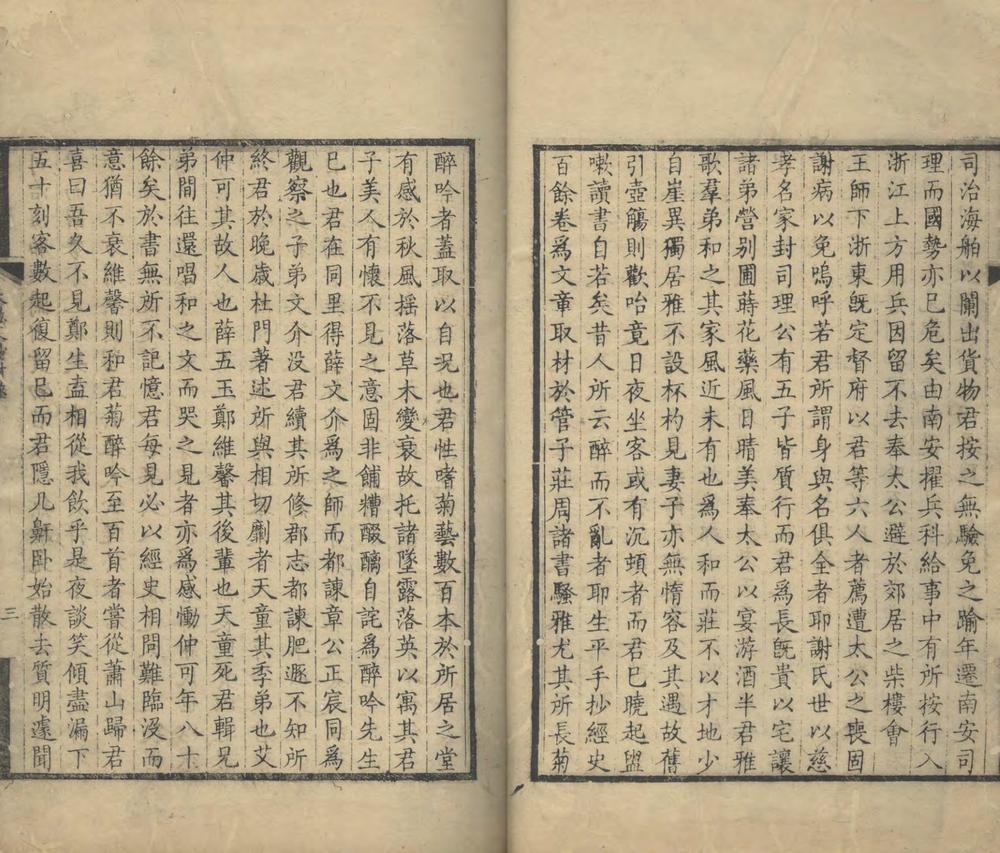 司治海舶以闌出貨物君按之無驗免之踰年遷南安司
理而國勢亦已危矣由南安擢兵科給事中有所按行入
浙江上方用兵因留不去奉太公避於郊居之柴樓會
王師下浙東旣定督府以君等六人者薦遭太公之喪固
謝病以免嗚呼若君所謂身與名俱全者耶謝氏世以慈
孝名家封司理公有五子皆質行而君爲長旣貴以宅讓
諸弟營別圃蒔花藥風日晴美奉太公以宴游酒半君雅
歌羣弟和之其家風近未有也爲人和而莊不以才地少
自崖異獨居雅不設杯杓見妻子亦無惰容及其遇故舊
引壺觴則歡咍竟日夜坐客或有沉頓者而君已曉起盥
嗽讀書自若矣昔人所云醉而不亂者耶生平手抄經史
百餘卷爲文章取材於管子莊周諸書騷雅尤其所長菊
醉吟者蓋取以自況也君性嗜菊藝數百本於所居之堂
有感於秋風揺落草木變衰故托諸墜露落英以寓其君
子美人有懷不見之意固非餔糟醊醨自詫爲醉吟先生
已也君在同里得薛文介爲之師而都諫章公正宸同爲
觀察之子弟文介没君續其所修郡志都諫肥遯不知所
終君於晚歳杜門著述所與相切劘者天童其季弟也艾
仲可其故人也薛五玉鄭維馨其後輩也天童死君輯兄
弟間往還唱和之文而哭之見者亦爲感慟仲可年八十
餘矣於書無所不記憶君每見必以經史相問難臨沒而
意猶不衰維馨則和君菊醉吟至百首者嘗從蕭山歸君
喜曰吾久不見鄭生盍相從我飲乎是夜談笑傾盡漏下
五十刻客數起復留已而君隱几鼾卧始散去質明遽聞
三